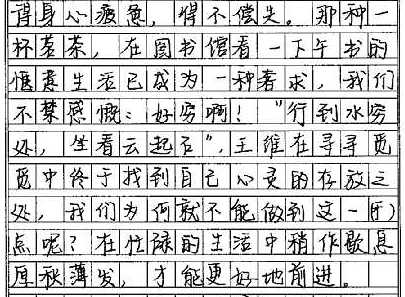 得身心疲惫，得不偿失。那种一
杯茗茶，在图书馆看一下午书的
惬意生活已成为一种奢求，我们
不禁感慨：好穷啊！"行到水穷
处，坐看云起石"，王维在寻寻觅
觅中终于找到自己心灵的存放之
处，我们为何就不能做到这一(斤)
点呢？在忙碌的生活中稍作歇息
厚积薄发，才能更好地前进。